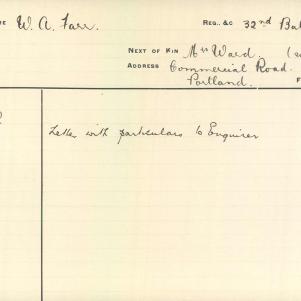 W. A. Farr. REG. &C 32nd Bat
NEXT OF KIN Mrs Ward.
ADDRESS Commercial Road.
Portland.
Letter with particulars to Enquirer